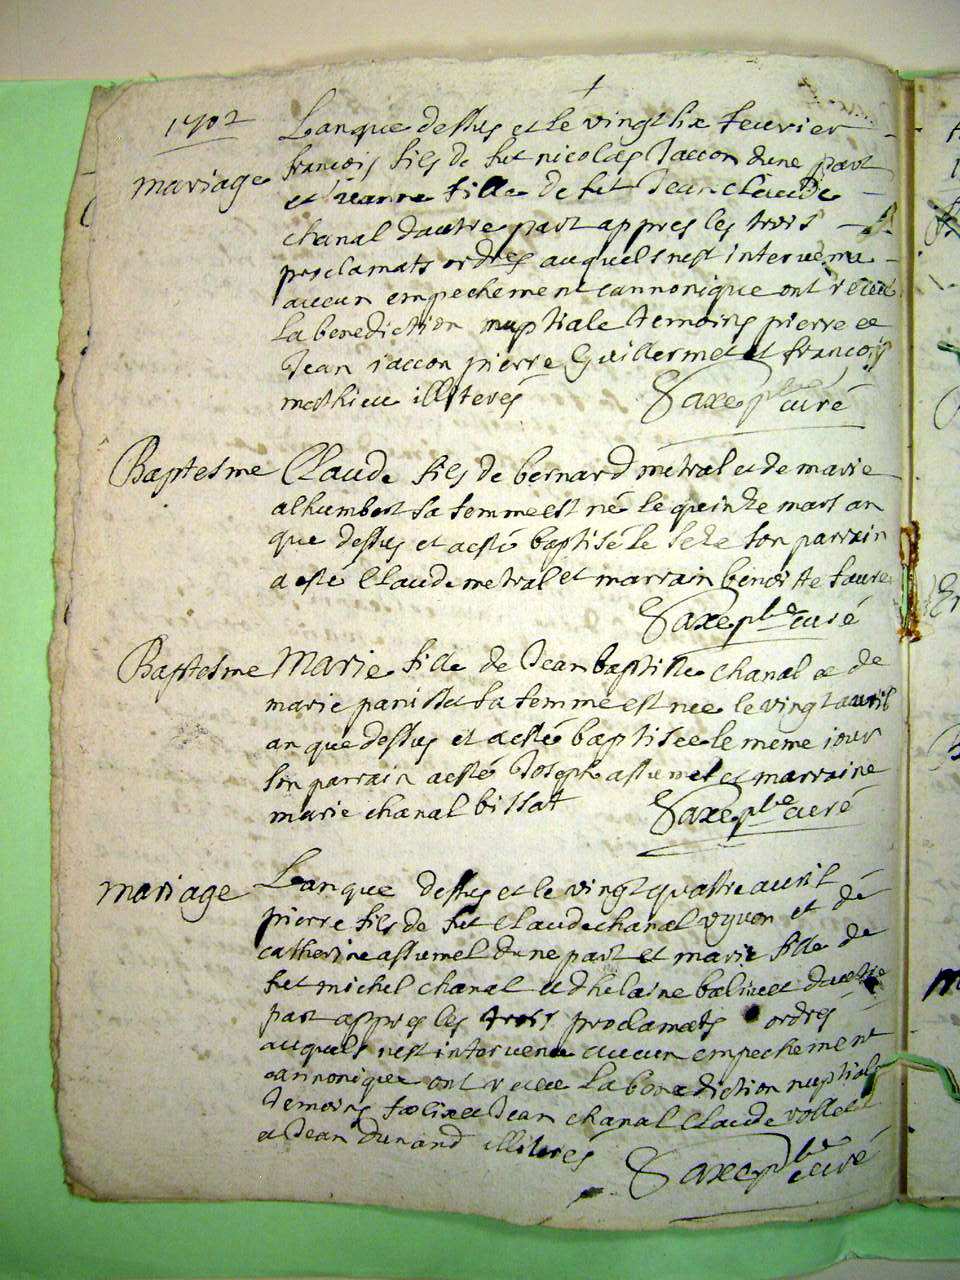 1702
mariage
Lan que dessus et le vingt six feuvrier
francois fils de fut nicolas Jaccon dune part
et jeanne fille de fut Jean claude
chanal dautre part appres les trois
proclamats ordres auquels nest intervenu
aucun empechement cannonique ont receu
la benediction nuptiale temoins pierre et
Jean jaccon pierre Guillermet et francois
mathieu illiteres Saxe pbre curé
Baptesme
Claude fils de bernard metral et de marie
alhumbert sa femme est né le quinze mars an
que dessus et a esté baptisé le seze son parrain
a esté Claude metral et marrain benoiste faure
Saxe pbre curé
Baptesme
Marie fille de Jean baptiste chanal et de
marie panisset sa femme est nee le vingt avril
an que dessus et a esté baptisee le meme jour
son parrain a esté Joseph assumel et marraine
marie chanal bissat Saxe pbre curé
mariage
Lan que dessus et le vingt quattre avril
pierre fils de fut Claude chanal vyvon et de
catherine assumel dune part et marie fille de
fut michel chanal et dhelaine balivet dautre
part appres les trois proclamats ordres
auquels nest intervenu aucun empechement
cannonique ont receu la benediction nuptiale
temoins felix et Jean chanal Claude vollet
et Jean Dunand illiteres
Saxe pbre curé